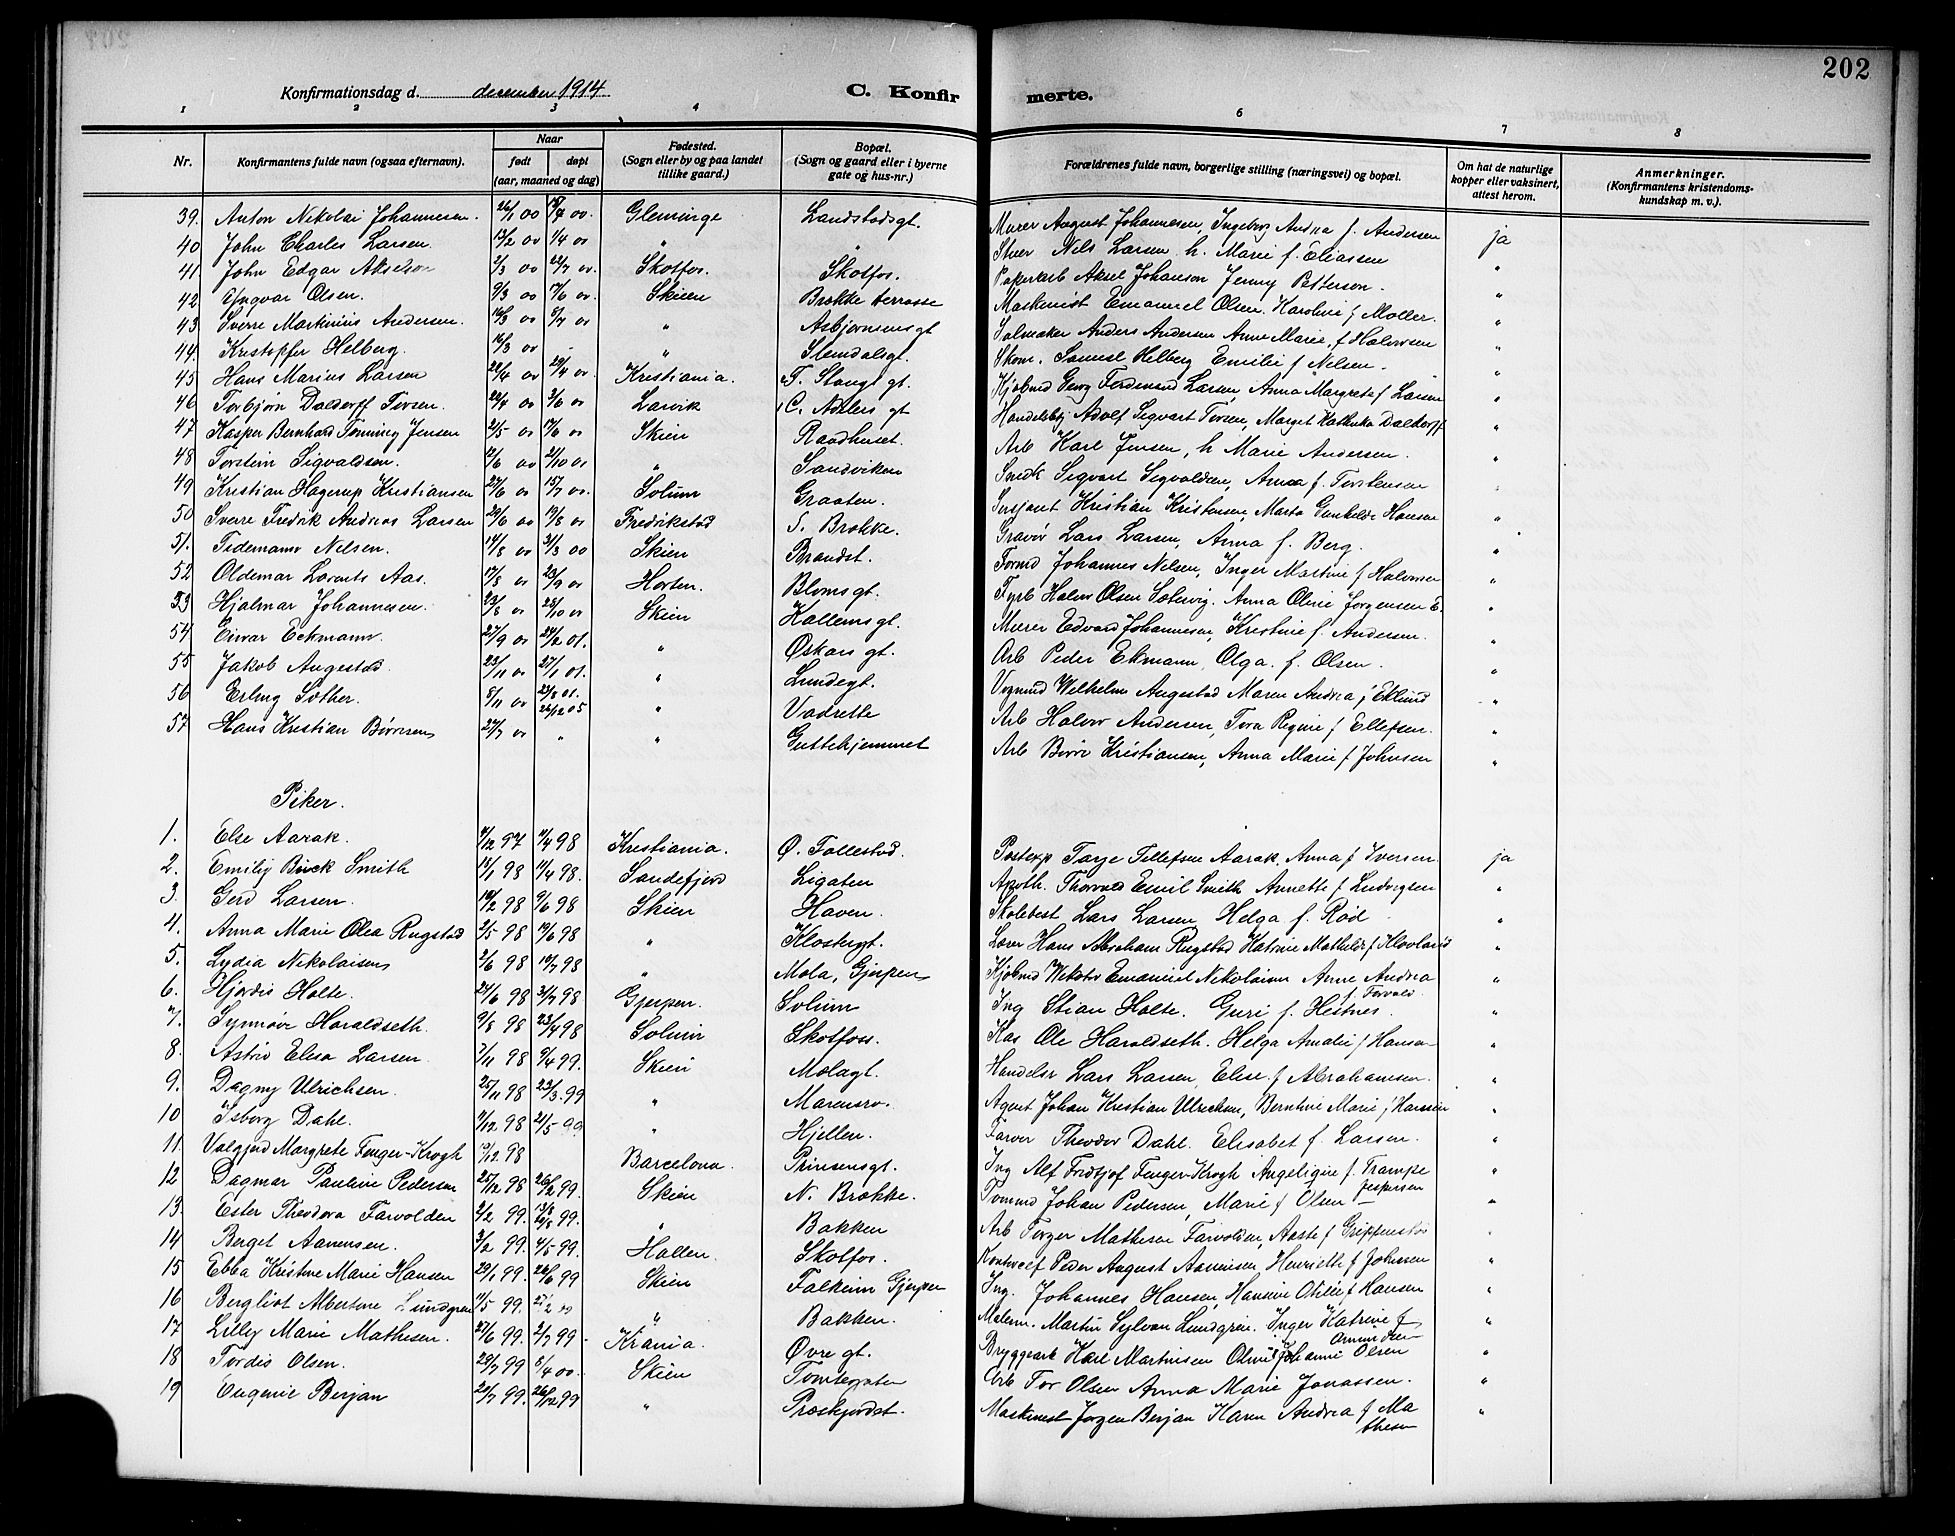 202
Konfirmationsdag d. desember 1914
C. Konfirmerte.
1 2 3 4 5 6 7 8
Nr. Konfirmantens fulde navn (ogsaa efternavn). Naar født døpt (aar, maaned og dag) Fødested. (Sogn eller by og paa landet tillike gaard.) Bopæl. (Sogn og gaard eller i byerne gate og hus-nr.) Forældrenes fulde navn, borgerlige stilling (næringsvei) og bopæl. Om hat de naturlige kopper eller vaksinert, attest herom. Anmerkninger. (Konfirmantens kristendomskundskap m. v.).
39. Anton Nikolai Johannesen. 26/1 00 15/4 00. Glemminge Landstadsgt. Murer August Johannesen, Ingeborg Andrea f. Andersen ja
40 John Charles Larsen. 13/2 00 1/4 00 " " Stuer Nils Larsen h. Marie f. Eliassen "
41. John Edgar Akselson 2/3 00 22/7 00. Skotfos. Skotfos. Papirarb Aksel Johanson Jenny Petterson. "
42. Yngvar Olsen. 9/3 00 17/6 00. Skien Brekke terrasse Maskinist Emanuel Olsen. Karoline f Møller. "
43. Sverre Martinius Andersen. 16/3 00 8/7 00 " Asbjørnsensgt Salmaker Anders Andersen Anne Marie, f Halvorsen "
44. Kristoffer Helberg. 16/3 00 - " Stendalsgt. Skom. Samuel Helberg Emilie f Nelsen. "
45 Hans Marius Larsen 22/4 00 29/4 00. Kristiania. T. Stangs gt. Kjøbmd Georg Ferdinand Larsen, Anna Margrete f Larsen "
46 Torbjørn Daldorff Tørsen. 22/4 00 3/6 00 Larvik C. Nilers gt Handelsbtj Adolf Sigvart Tørsen, Marget Kathinka Daldorff "
47 Kasper Bernhard Tønning Jensen 2/5 00 17/6 00 Skien Raadhuset. Arb Karl Jensen, h Marie Andersen. "
48 Torstein Sigvaldsen. 12/6 00 21/10 00 " Sandviken Smed Sigvart Sigvaldsen, Anna f. Torstensen "
49 Kristian Hagerup Kristiansen 27/6 00 15/7 00. Solum Graaten. Sersjant Kristian Kristensen, Marta Gunhilde Hansen "
50 Sverre Fredrik Andreas Larsen 29/6 00 19/8 00 Fredrikstad N. Brekke. Gravør Lars Larsen, Anna f. Berg. "
51. Tidemann Nelsen. 14/8 00 31/3 00 Skien Brandst. Tømd Johannes Nelsen, Inger Martine f Halvorsen "
52 Oldemar Lorents Aas. 17/8 00 23/9 00 Horten. Bloms gt. Fyrb Halvor Olsen Sætervig. Anna Oline Jørgensen E. "
53 Hjalmar Johannesen. 23/8 00 28/10 00 Skien Kallems gt. Murer Edvard Johannesen, Kristine f. Andersen. "
54 Einar Eckmann. 27/9 00 24/2 01. " Oskars gt. Arb Peder Ekmann, Olga. f. Olsen. "
55 Jakob Augestad. 23/11 00 27/1 01. " Lundegt. Vognmd Wilhelm Augestad Maren Andrea f Eklund "
56 Erling Sæther. 5/11 00 25/8 01. 26/12 05 " Vadrette Arb Halvor Andersen, Tora Regine f Ellefsen. "
57 Hans Kristian Børresen 27/7 00 " " Guttehjemmet Arb Børre Kristiansen, Anna Marie f Johnsen "
Piker.
1. Else Aarak. 17/12 97 11/4 98 Kristiania. Ø. Follestad. Postexp Tarje Tellefsen Aarak, Anna f Iversen ja
2. Emilie Buck Smith 12/1 98 11/4 98. Sandefjord Ligaten Apoth. Thorvald Emil Smith Annette f Ludvigsen "
3. Gerd Larsen. 10/2 98 9/6 98 Skien Haven. Skolebest Lars Larsen, Helga f. Rød "
4. Anna Marie Olea Rugstad 2/5 98 19/6 98 " Klostergt. Lærer Hans Abraham Rugstad Katrine Mathilde f Klovland "
5. Lydia Nikolaisen 2/6 98 10/7 98 " Mæla, Gjerpen Kjøbmd Viktor Emanuel Nikolaisen Anne Andrea f. Torvald. "
6. Hjørdis Holte. 24/6 98 31/7 98 Gjerpen. Solum Ing Stian Holte. Guri f. Hestnes. "
7. Synnøve Haraldseth. 9/8 98 23/4 98 Solum Skotfoss. Kas Ole Haraldseth. Helga Amalie f Hansen "
8. Astrid Elisa Larsen. 7/11 98 9/4 99. Skien Mælagt. Handelsr Lars Larsen, Elise f Abrahamsen. "
9. Dagny Ulrichsen. 25/11 98 23/3 99 " Marensro. Agent Johan Kristian Ulrichsen, Berntine Marie f Hansen "
10 Isborg Dahl. 11/12 98 21/5 99 " Hjellen. Farver Theodor Dahl. Elisabet f. Larsen. "
11. Valgjerd Margrete Fenger-Krogh 19/12 98 Barcelona. Prinsensgt. Ing Alf Fridtjof Fenger-Krogh Angeligue f. Trampe Jespersen "
12 Dagmar Pauline Pedersen 25/12 98 26/2 99. Skien N. Brekke. Tømmd Johan Pedersen, Marie f Olsen "
13. Ester Theodora Farvolden 2/2 99. 13/8 20/8 99. " Bakken Arb Torger Mathisen Farvolden, Aaste f Grippenstøe "
14 Berget Aanensen. 3/2 99. 4/5 99. Hallen. Skotfos. Kontorchef Peder August Aanensen, Henriette f Johnsen "
15 Ebba Kristine Marie Hansen 29/1 99. 26/6 99 Skien Falkum Gjerpen Ing. Johannes Hansen, Hansine Otilie f Hansen "
16 Bergliot Albertine Lundgren 11/5 99. 27/2 00 " Bakken. Malerm. Martin Sylvan Lundgren. Inger Katrine f Amundsen "
17 Lilly Marie Mathisen. 27/6 99. 2/7 99 Krania. Øvre gt. Bryggearb Karl Martinsen Oline Johanne Olsen "
18 Tordis Olsen. 20/7 99 8/4 00. Skien Tomtegaten Arb Tor Olsen Anna Marie Jonassen. "
19 Eugenie Berjan 20/7 99. 26/12 99 " Præstejordet. Maskinist Jørgen Berjan Karen Andrea f Mathesen "